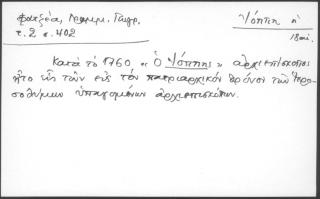 Φατζέα, Γραμμ. Γεωγρ. Ἰόππη ἡ
τ. 2 σ. 402 18 αἰ.
Κατὰ τὸ 1760 « Ὁ Ἰόππης » ἀρχιεπίσκοπος
ἦτο εἷς τῶν εἰς τὸν πατριαρχικὸν θρόνον τῶν Ἱερο-
σολύμων ὑπαγομένων ἀρχιεπισκόπων.